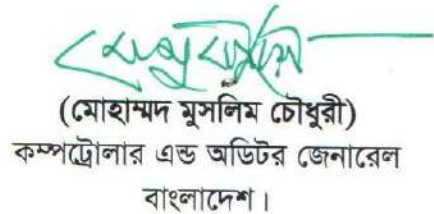 (মোহাম্মদ মুসলিম চৌধুরী)
কম্পট্রোলার এন্ড অডিটর জেনারেল
বাংলাদেশ।